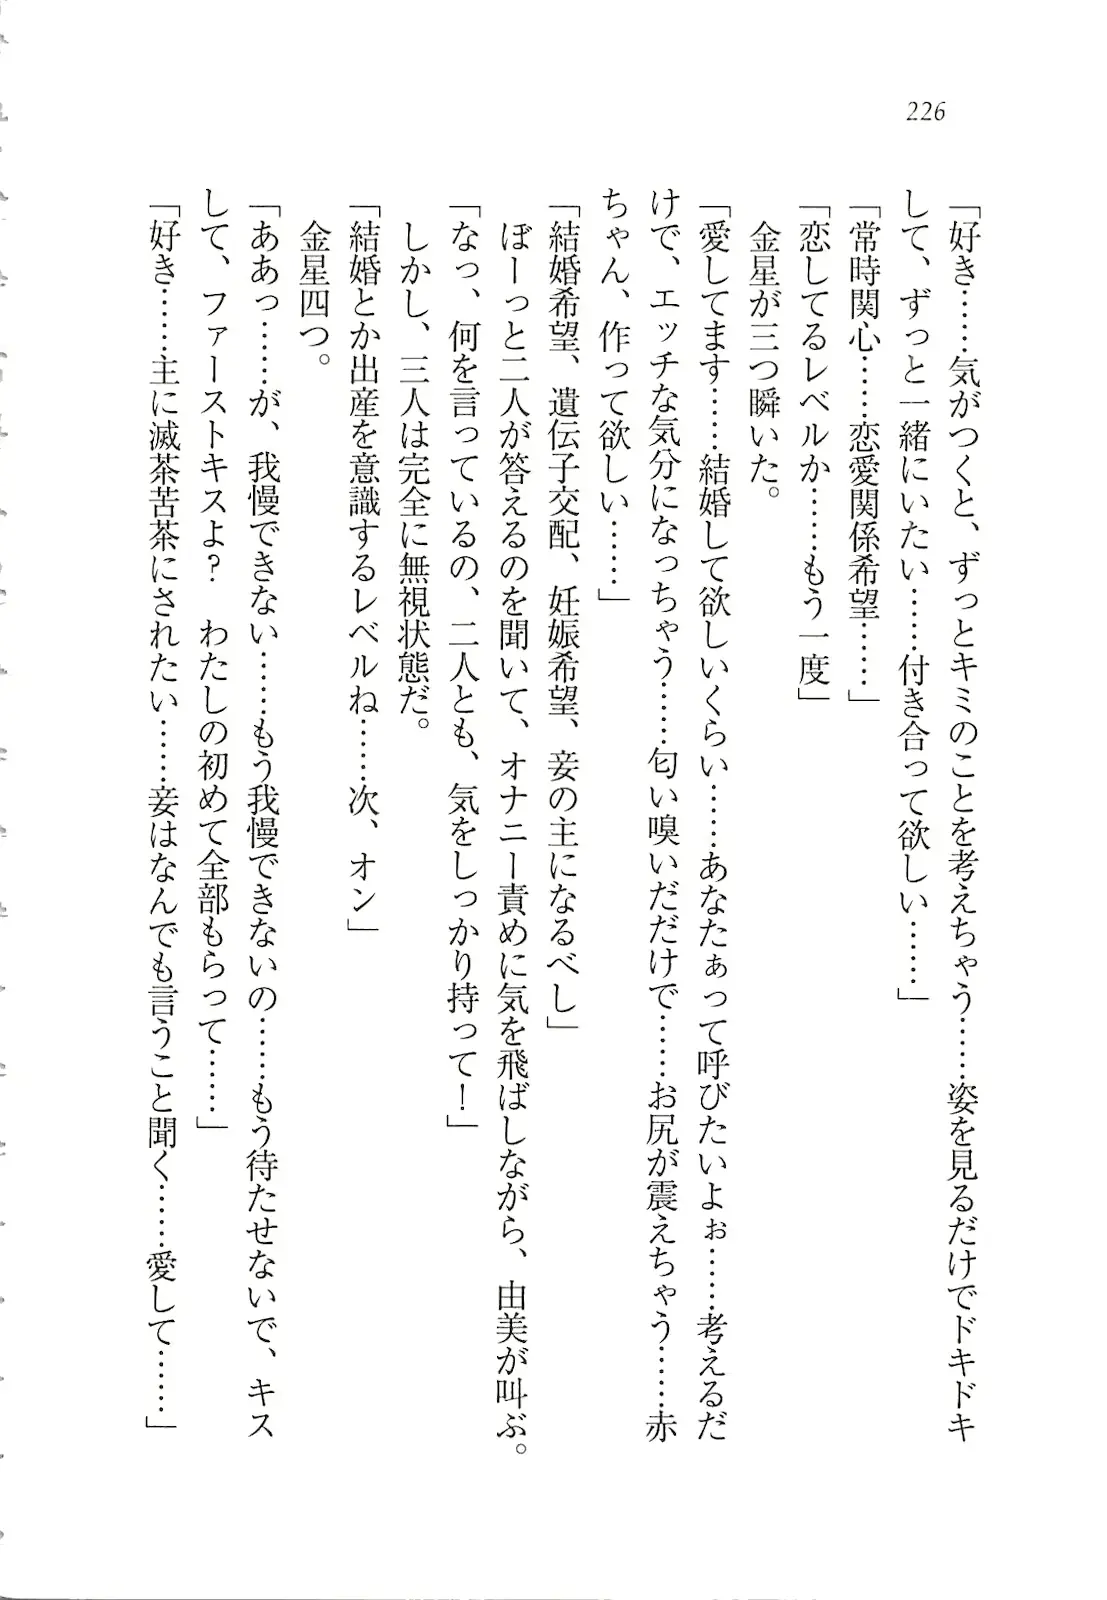 226
「好き……気がつくと、ずっとキミのことを考えちゃう……姿を見るだけでドキドキ
して、ずっと一緒にいたい……付き合って欲しい……」
「常時関心……恋愛関係希望……」
「恋してるレベルか……もう一度」
　金星が三つ瞬いた。
「愛してます……結婚して欲しいくらい……あなたぁって呼びたいよぉ……考えるだ
けで、エッチな気分になっちゃう……匂い嗅いだだけで……お尻が震えちゃう……赤
ちゃん、作って欲しい……」
「結婚希望、遺伝子交配、妊娠希望、妾の主になるべし」
　ぼーっと二人が答えるのを聞いて、オナニー責めに気を飛ばしながら、由美が叫ぶ。
「なっ、何を言っているの、二人とも、気をしっかり持って！」
　しかし、三人は完全に無視状態だ。
「結婚とか出産を意識するレベルね……次、オン」
　金星四つ。
「ああっ……が、我慢できない……もう我慢できないの……もう待たせないで、キス
して、ファーストキスよ？　わたしの初めて全部もらって……」
「好き……主に滅茶苦茶にされたい……妾はなんでも言うこと聞く……愛して……」